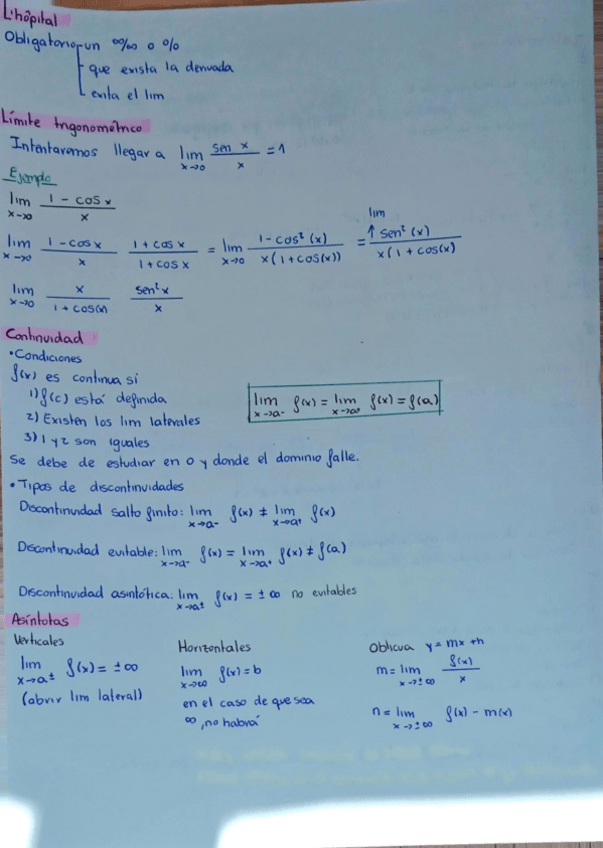 L'hôpital
Obligatorio un ∞/∞ o 0/0
que exista la derivada
exita el lim
Límite trigonométrico
Intentaremos llegar a lim x→0 sen x / x = 1
Ejemplo
lim x→0 1 - cos x / x
lim x→0 1 - cos x / x 1 + cos x / 1 + cos x = lim x→0 1 - cos² (x) / x (1 + cos(x)) = lim ↑ sen² (x) / x (1 + cos(x)
lim x→0 x / 1 + cos(x) sen² x / x
Continuidad
• Condiciones
f(x) es continua si
1) f(c) está definida
2) Existen los lim laterales
3) 1 y 2 son iguales
lim x→a⁻ f(x) = lim x→a⁺ f(x) = f(a)
Se debe de estudiar en 0 y donde el dominio falle.
• Tipos de discontinuidades
Discontinuidad salto finito: lim x→a⁻ f(x) ≠ lim x→a⁺ f(x)
Discontinuidad evitable: lim x→a⁻ f(x) = lim x→a⁺ f(x) ≠ f(a)
Discontinuidad asintótica: lim x→a± f(x) = ± ∞ no evitables
Asíntotas
Verticales
lim x→a± f(x) = ± ∞
(abrir lim lateral)
Horizontales
lim x→∞ f(x) = b
en el caso de que sea
∞, no habrá
Oblicua y = mx + n
m = lim x→±∞ f(x) / x
n = lim x→±∞ f(x) - m(x)